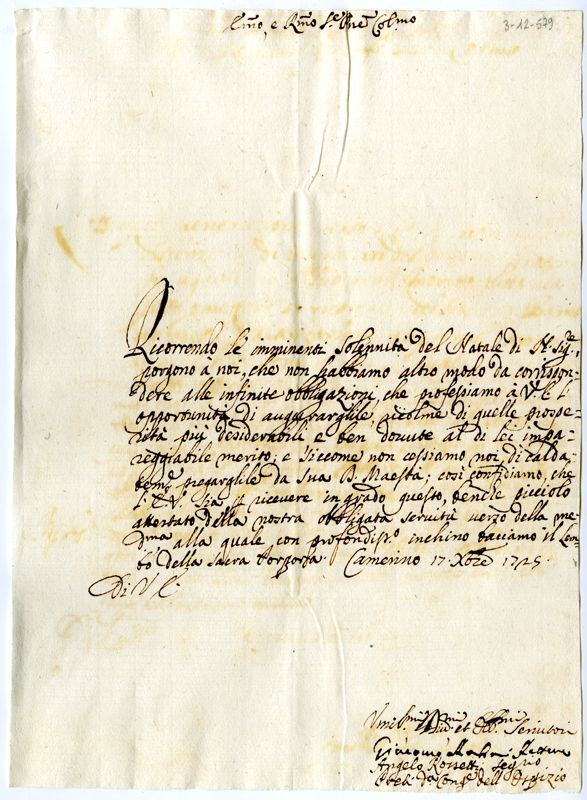 Emo, e Rmo Sre Pne Colmo
3-12-579
Ricorrendo le imminenti Solennità del Natale di N. Sigre,
porgono a noi, che non habbiamo altro modo da corrispon=
dere alle infinite obbligazioni, che professiamo à V. E. l'
opportunità di augurargliele ricolme di quelle prospe=
rità più desiderabili e ben dovute al di lei impa=
reggiabile merito; e siccome non cessiamo noi di calda,
teme pregarglile da Sua D. Maestà; così confidiamo, che
l'E. V. sia p ricevere in grado questo, benche picciolo
attestato della nostra obbligata servitù verso della me=
dma alla quale, con profondissº inchino baciamo il Lem=
bo della Sacra Porpora. Camerino 17 Xbre 1725.
Di V. E.
Umilmi Divmi et Obbmi Servitori
Giacomo
Angelo Rossetti Segrio
della Conge dell' Ospizio